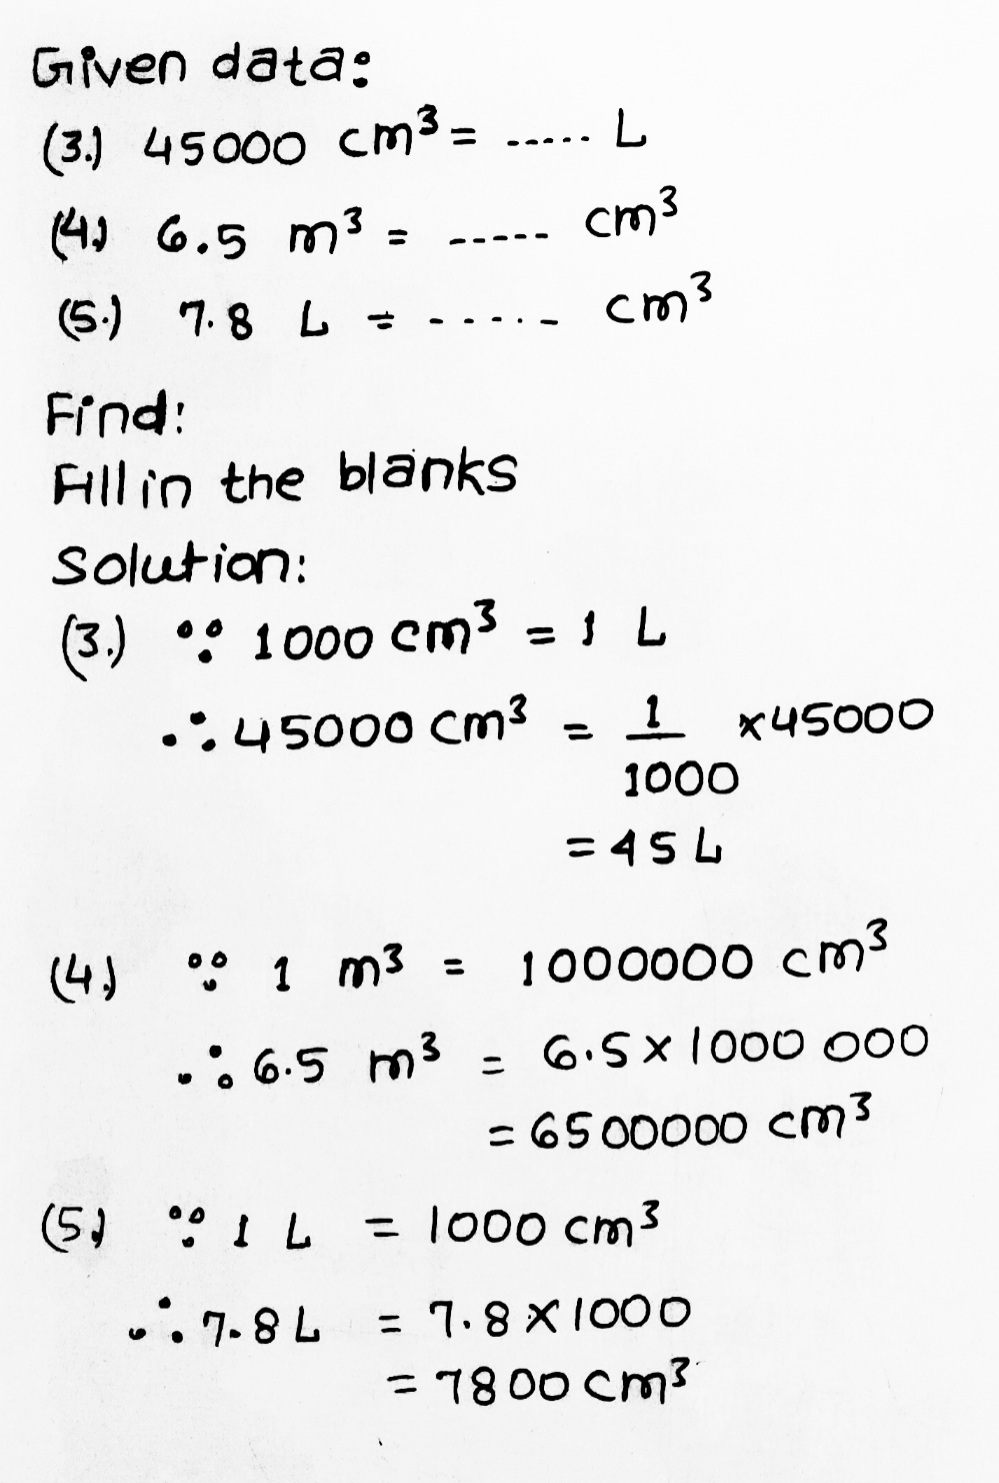 Given data:
(3.) 45000 cm³ = ..... L
(4.) 6.5 m³ = ..... cm³
(5.) 7.8 L = ..... cm³
Find:
Fill in the blanks
Solution:
(3.) ∵ 1000 cm³ = 1 L
∴ 45000 cm³ = 1/1000 ×45000
= 45 L
(4.) ∵ 1 m³ = 1000000 cm³
∴ 6.5 m³ = 6.5 × 1000 000
= 6500000 cm³
(5.) ∵ 1 L = 1000 cm³
∴ 7.8 L = 7.8 × 1000
= 7800 cm³